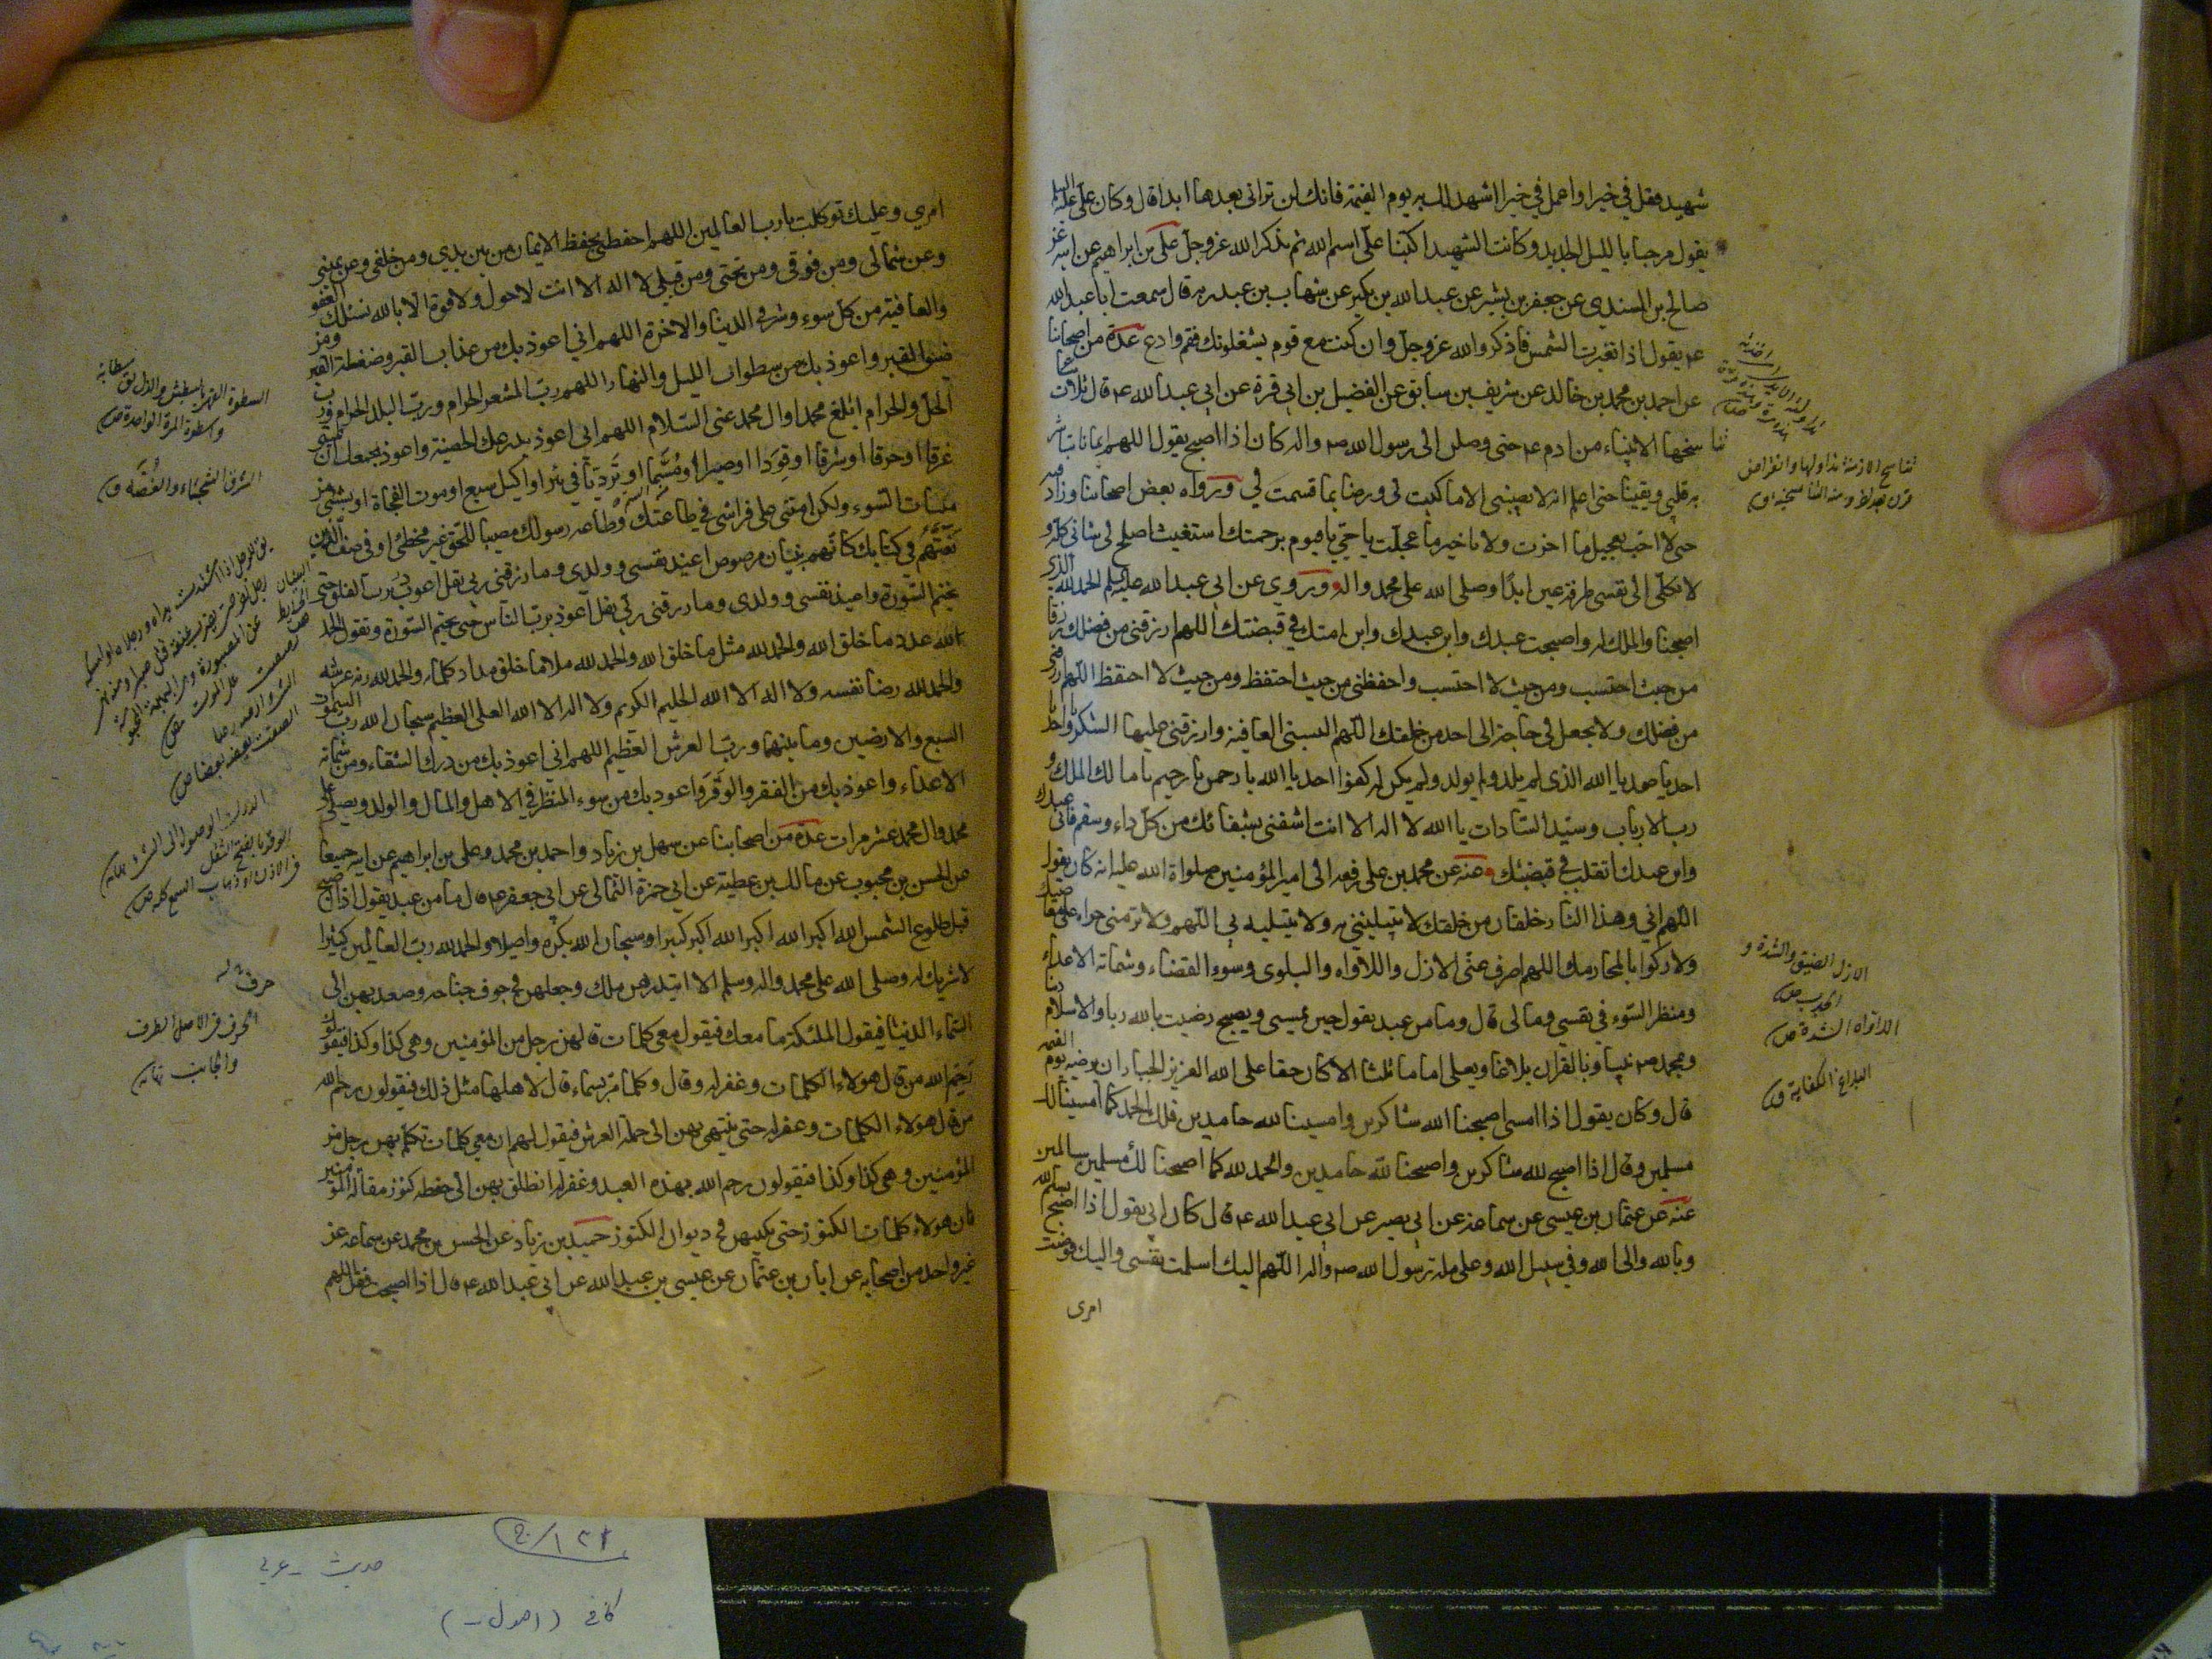 شهيد فقل في خيرا واعمل في خيرا اشهد لك به يوم القيمة فانك لن تراني بعدها ابدا قال وكان علي عليه السلم
يقول مرحبا بالليل الجديد وكانت الشهيد اكتبا على اسم الله ثم يذكر الله عز وجل علي بن ابراهيم عن ابيه عن
صالح بن السندي عن جعفر بن بشير عن عبد الله بن بكير عن شهاب بن عبد ربه قال سمعت ابا عبد الله
عم يقول اذا تغيرت الشمس فاذكروا الله عز وجل وان كنت مع قوم يشغلونك فقم وادع عدة من اصحابنا
عن احمد بن محمد بن خالد عن شريف بن سابق عن الفضيل بن ابي قرة عن ابي عبد الله عم قال ثلاث
تناسخها الانبياء من ادم عم حتى وصلن الى رسول الله صم واله كان اذا اصبح يقول اللهم ايمانا تباشر
به قلبي ويقينا حتى اعلم انه لا يصيبني الا ما كتبت لي ورضا بما قسمت لي ورواه بعض اصحابنا وزاد فيه
حتى لا احب تعجيل ما اخرت ولا تاخير ما عجلت يا حي يا قيوم برحمتك استغيث اصلح لي شاني كله و
لا تكلني الى نفسي طرفة عين ابدا وصلى الله على محمد واله وروي عن ابي عبد الله عليه السلم الحمد لله الذي
اصبحنا والملك له واصبحت عبدك وابن عبدك وابن امتك في قبضتك اللهم ارزقني من فضلك رزقا
من حيث احتسب ومن حيث لا احتسب واحفظني من حيث احتفظ ومن حيث لا احتفظ اللهم ارزقني
من فضلك ولا تجعل لي حاجة الى احد من خلقك اللهم البسني العافية وارزقني عليها الشكر يا واحد يا
احد يا صمد يا الله الذي لم يلد ولم يولد ولم يكن له كفوا احد يا الله يا رحمن يا رحيم يا مالك الملك و
رب الارباب وسيد السادات يا الله لا اله الا انت اشفني بشفائك من كل داء وسقم فاني عبدك
وابن عبدك اتقلب في قبضتك وعنه عن محمد بن علي رفعه الى امير المؤمنين صلواة الله عليه انه كان يقول
اللهم اني وهذا النهار خلقان من خلقك لا تبتليني به ولا تبتليه بي اللهم ولا تره مني جراة على معاصيك
ولا ركوبا لمحارمك اللهم اصرف عني الازل واللاواء والبلوى وسوء القضاء وشماتة الاعداء
ومنظر السوء في نفسي ومالي قال وما من عبد يقول حين يمسي ويصبح رضيت بالله ربا وبالاسلام دينا
وبمحمد صم نبيا وبالقران بلاغا وبعلي اماما ثلثا الا كان حقا على الله العزيز الجبار ان يرضيه يوم القيمة
قال وكان يقول اذا امسى اصبحنا لله شاكرين وامسينا لله حامدين فلك الحمد كما امسينا لك
مسلمين سالمين وقال اذا اصبح لله شاكرين واصبحنا لله حامدين والحمد لله كما اصبحنا لك مسلمين سالمين
عنه عن عثمان بن عيسى عن سماعة عن ابي بصير عن ابي عبد الله عم قال كان ابي يقول اذا اصبح بسم الله
وبالله والى الله وفي سبيل الله وعلى ملة رسول الله صم واله اللهم اليك اسلمت نفسي واليك فوضت
امري
تناسخ الازمنة تداولها وانقراض
قرن بعد
الازل الضيق والشدة و
الجدب ص
اللاواء الشدة ص
البلاغ الكفاية ق
امري وعليك توكلت يا رب العالمين اللهم احفظني بحفظ الايمان من بين يدي ومن خلفي وعن يميني
وعن شمالي ومن فوقي ومن تحتي ومن قبلي لا اله الا انت لا حول ولا قوة الا بالله نسئلك العفو
والعافية من كل سوء وشر في الدنيا والاخرة اللهم اني اعوذ بك من عذاب القبر وضغطة القبر ومن
ضيق القبر واعوذ بك من سطوات الليل والنهار اللهم رب المشعر الحرام ورب البلد الحرام ورب
الحل والحرام ابلغ محمدا وال محمد عني السلام اللهم اني اعوذ بدرعك الحصينة واعوذ بجمعك ان تميتني
غرقا او حرقا او شرقا او قودا او صبرا او مسما او ترديا في بئر او اكيل سبع او موت الفجاة او بشئ من
ميتات السوء ولكن امتني على فراشي في طاعتك وطاعة رسولك مصيبا للحق غير مخطئ او في صف الذين
نعتهم في كتابك كانهم بنيان مرصوص اعيذ نفسي وولدي وما رزقني ربي بقل اعوذ برب الفلق حتى
يختم السورة واعيذ نفسي وولدي وما رزقني ربي بقل اعوذ برب الناس حتى يختم السورة وتقول الحمد
لله عدد ما خلق الله والحمد لله مثل ما خلق الله والحمد لله ملا ما خلق مداد كلماته والحمد لله زنة عرشه
والحمد لله رضا نفسه ولا اله الا الله الحليم الكريم ولا اله الا الله العلي العظيم سبحان الله رب السموات
السبع والارضين وما بينهما ورب العرش العظيم اللهم اني اعوذ بك من درك الشقاء ومن شماتة
الاعداء واعوذ بك من الفقر والوقر واعوذ بك من سوء المنظر في الاهل والمال والولد ويصلي على
محمد وال محمد عشر مرات عدة من اصحابنا عن سهل بن زياد واحمد بن محمد وعلي بن ابراهيم عن ابيه جميعا
عن الحسن بن محبوب عن مالك بن عطية عن ابي حمزة الثمالي عن ابي جعفر عم قال ما من عبد يقول اذا اصبح
قبل طلوع الشمس الله اكبر الله اكبر الله اكبر كبيرا وسبحان الله بكرة واصيلا والحمد لله رب العالمين كثيرا
لا شريك له وصلى الله على محمد واله وسلم الا ابتدرهن ملك وجعلهن في جوف جناحه وصعد بهن الى
السماء الدنيا فيقول الملئكة ما معك فيقول معي كلمات قالهن رجل من المؤمنين وهي كذا وكذا فيقولون
رحم الله من قال هولاء الكلمات وغفر له وقال وكلما مر بسماء قال لاهلها مثل ذلك فيقولون رحم الله
من قال هولاء الكلمات وغفر له حتى ينتهي بهن الى حملة العرش فيقول لهم ان معي كلمات تكلم بهن رجل من
المؤمنين وهي كذا وكذا فيقولون رحم الله بهذه العبد وغفر له انطلق بهن الى حفظه كنوز مقالة المؤمنين
فان هولاء كلمات الكنوز حتى يكتبهن في ديوان الكنوز حميد بن زياد عن الحسن بن محمد عن سماعة عن
غير واحد من اصحابه عن ابان بن عثمان عن عيسى بن عبد الله عن ابي عبد الله عم قال اذا اصبحت فقل اللهم
السطوة القهر بالبطش
والسطوة المرة الواحدة ص
الشرق الشجاء والغصة ق
الحرف في الاصل الطرف
والجانب نهاية
١٢١/ج
حديث - عربي
كافى (اصول -)